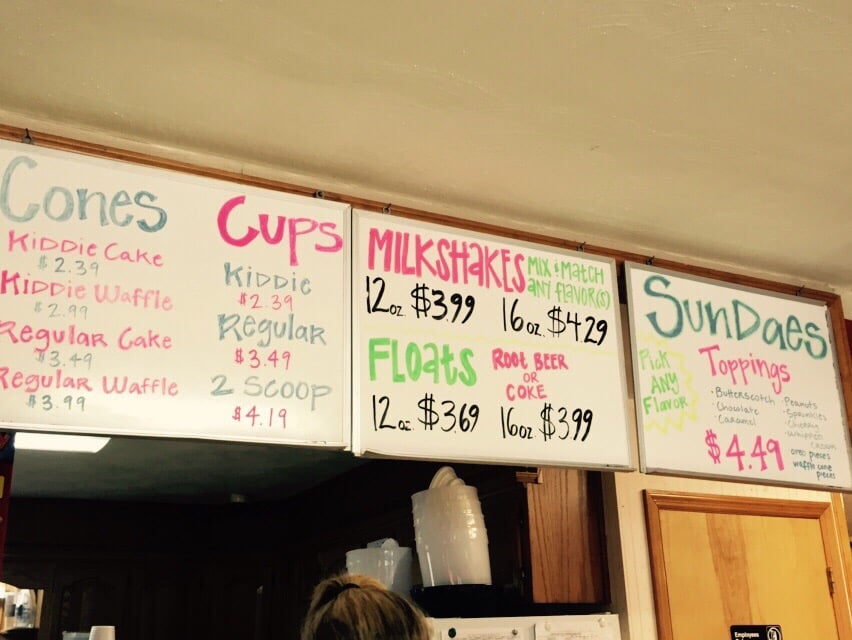 Cones
Kiddie Cake
$2.39
Kiddie Waffle
$2.99
Regular Cake
$3.49
Regular Waffle
$3.99
Cups
Kiddie
$2.39
Regular
$3.49
2 Scoop
$4.19
MILKSHAKES
MIX & MATCH
ANY FLAVOR(S)
12oz. $3.99
16oz. $4.29
FLOATS
ROOT BEER
OR
COKE
12oz. $3.69
16oz. $3.99
SunDaes
Pick
ANY
Flavor
Toppings
·Butterscotch
·Chocolate
·Caramel
·Peanuts
·Sprinkles
·Cherry
·Whipped
Cream
oreo pieces
waffle cone
pieces
$4.49
Employees